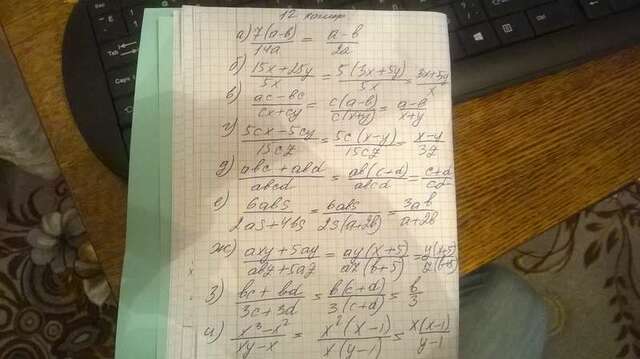 а) 7(a-b)/14a = a-b/2a
б) 15x+25y/5x = 5(3x+5y)/5x = 3x+5y/x
в) ac-bc/cx+cy = c(a-b)/c(x+y) = a-b/x+y
г) 5cx-5cy/15cz = 5c(x-y)/15cz = x-y/3z
д) abc+abd/abcd = ab(c+d)/abcd = c+d/cd
е) 6abs/2as+4bs = 6abs/2s(a+2b) = 3ab/a+2b
ж) axy+5ay/abz+5az = ay(x+5)/az(b+5) = y(x+5)/z(b+5)
з) bc+bd/3c+3d = b(c+d)/3(c+d) = b/3
и) x³-x²/xy-x = x²(x-1)/x(y-1) = x(x-1)/y-1